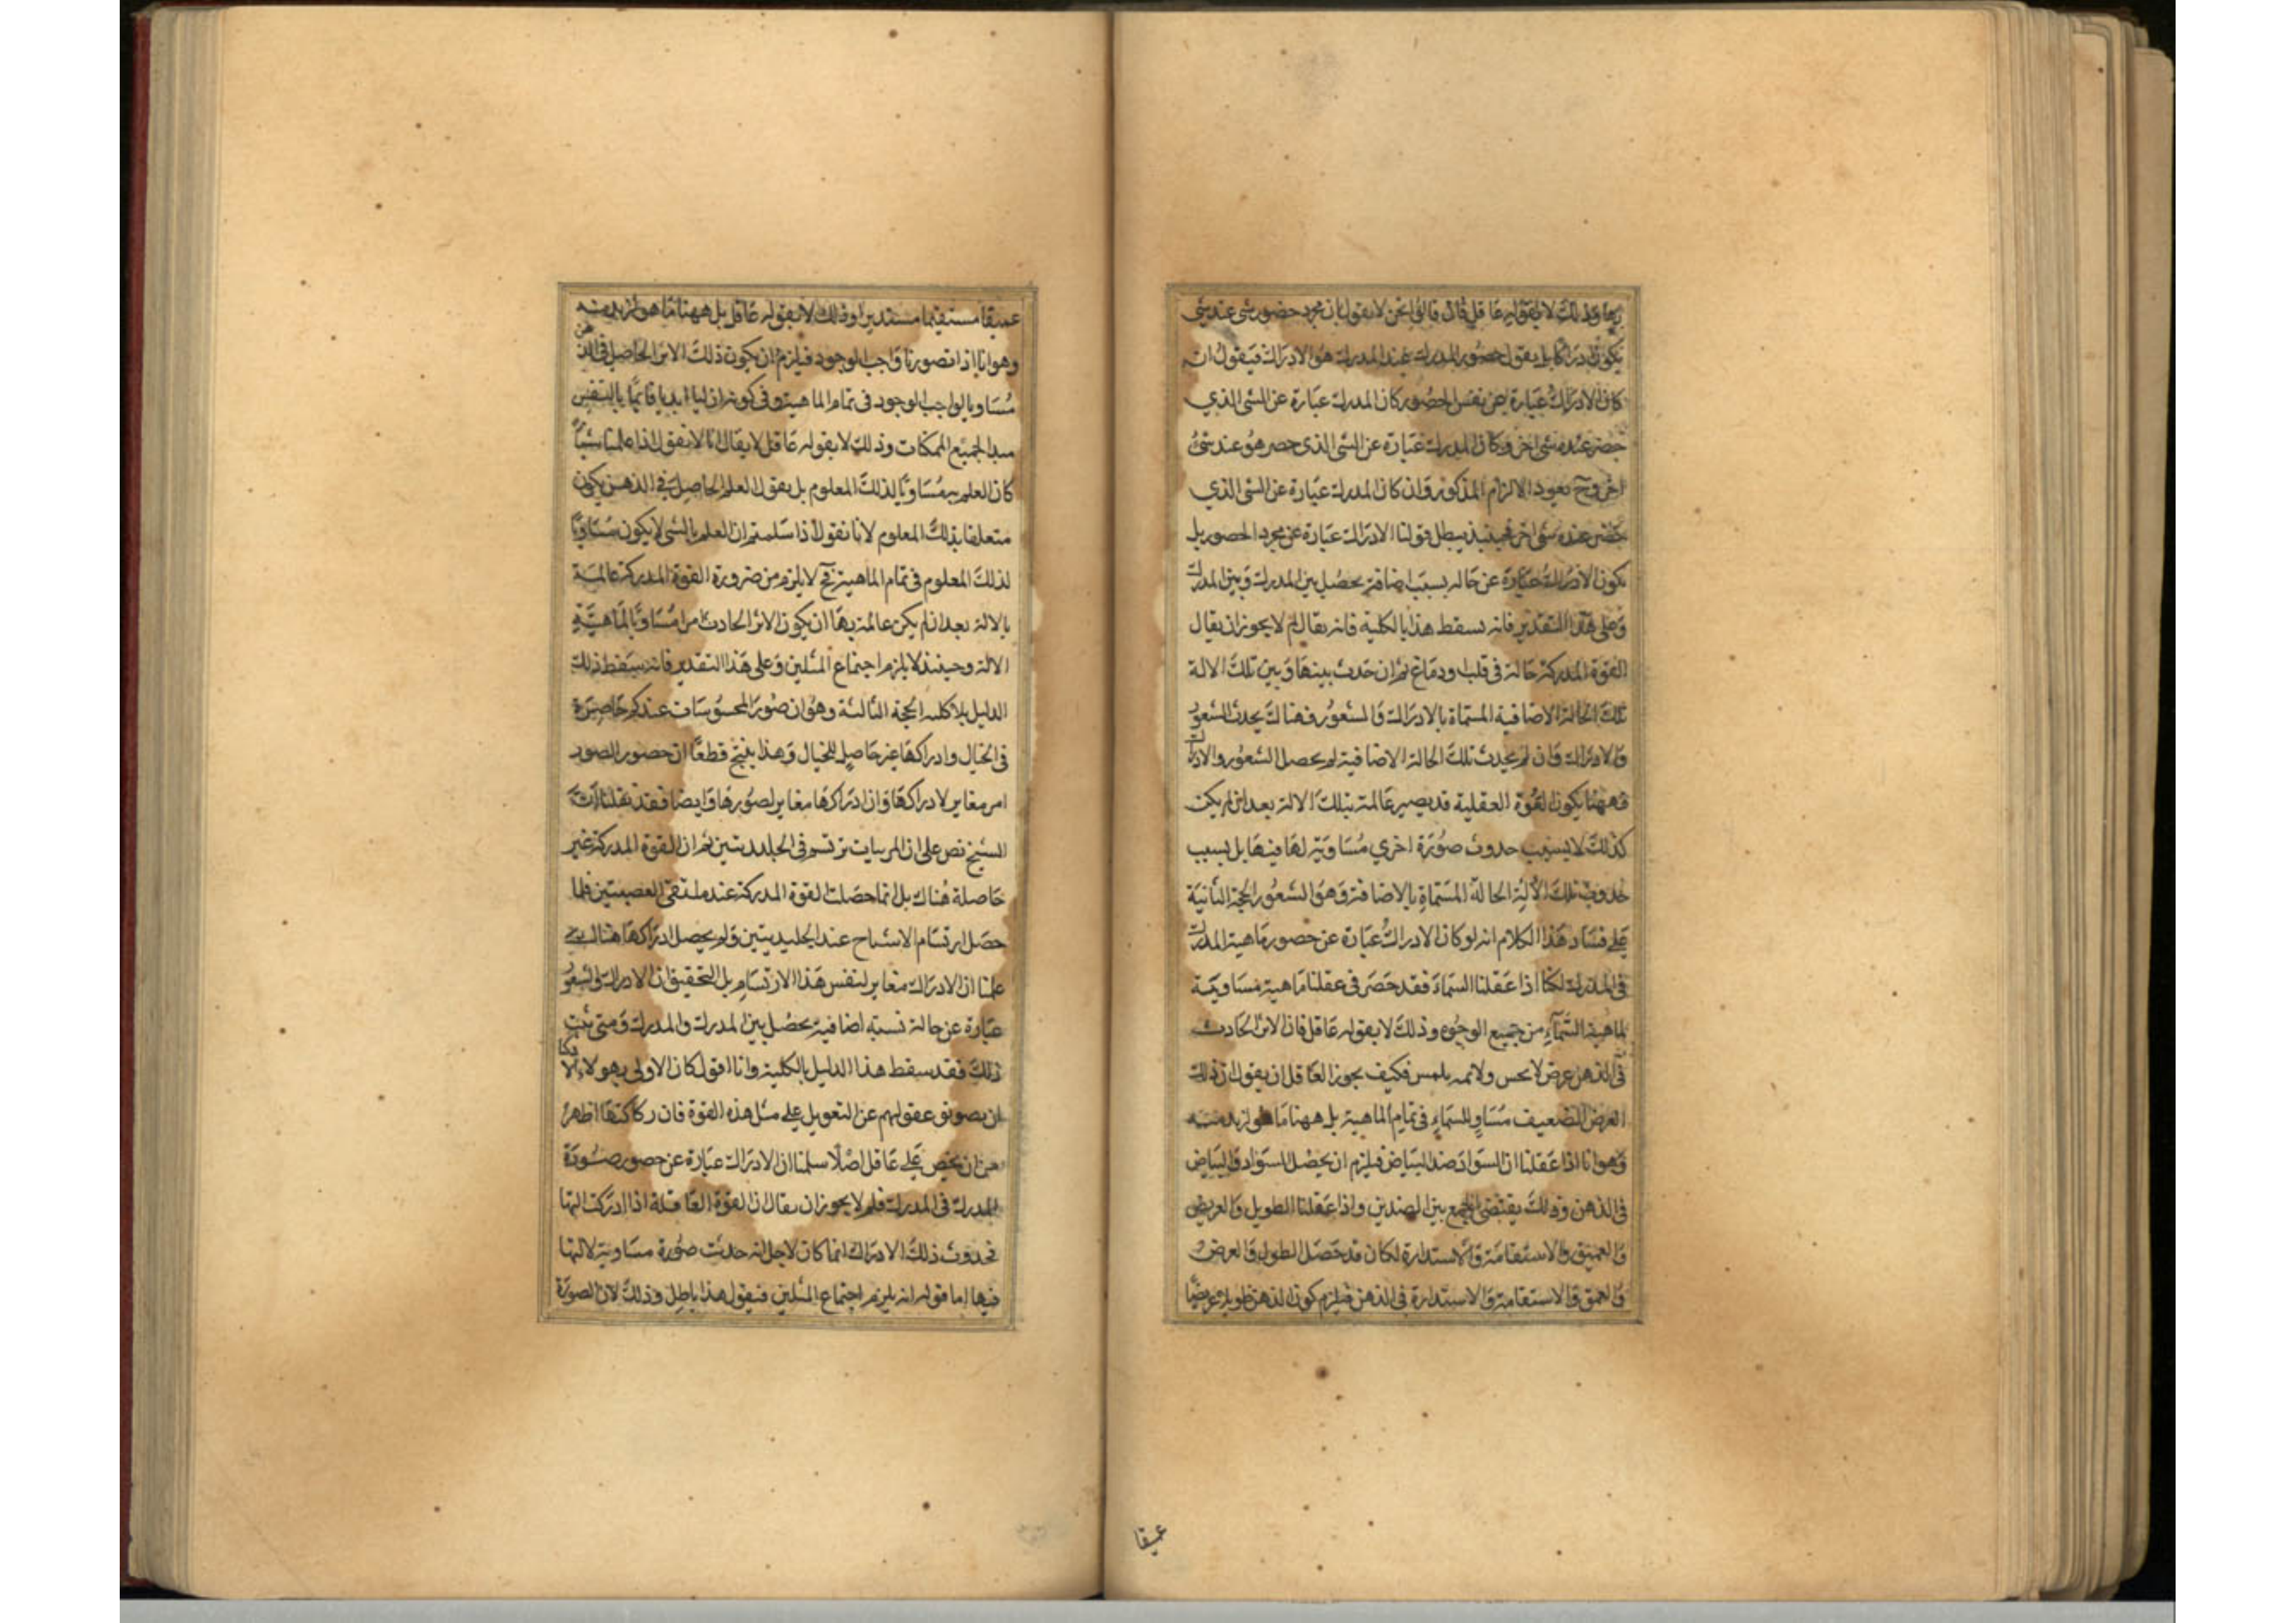 وذلك لا يقوله عاقل فان قالوا نحن لا نقول بان مجرد حضور شى عند شى
يكون ادراكا بل نقول حضور المدرك عند المدرك هو الادراك فيقول ان
كان الادراك عبارة عن نفس الحضور كان المدرك عبارة عن الشى الذي
حضر عنده شى اخر وكان المدرك عبارة عن الشى الذى حصر هو عند شئ
اخر وح يعود الالزام المذكور وان كان المدرك عبارة عن الشى الذي
حضر عنده شى اخر فحينيذ يبطل قولنا الادراك عبارة عن مجرد الحصور بل
يكون الادراك عبارة عن حاله بسبب اضافة يحصل بين المدرك وبين المدرك
وعلى هذا التقدير فانه يسقط هذا بالكلية فانه يقال لم لا يجوز ان يقال
القوة المدركة حالة فى قلب ودماغ ثم ان حدث بينها وبين تلك الالة
تلك الحالة الاضافية المسماة بالادراك والشعور فهناك يحدث الشعور
والادراك وان لم يحدث تلك الحالة الاضافية لم يحصل الشعور والادراك
فههنا يكون القوة العقلية قد يصير عالمة بتلك الالة بعد ان لم يكن
كذلك لا بسبب حدوث صورة اخري مساوية لها فيها بل بسبب
حدوث تلك الحالة المسماة بالاضافة وهو الشعور الحجة الثانية
على فساد هذا الكلام انه لو كان الادراك عبارة عن حصور ماهية المدرك
فى المدرك لكنا اذا عقلنا السماء فقد حضر فى عقلنا ماهية مساوية
لماهية السماء من جميع الوجوه وذلك لا يقوله عاقل فان الاثر الحادث
فى الذهن عرض لا يحس ولا يلمس فكيف يجوز العاقل ان يقول ان ذلك
العرض الضعيف مساو للسماء فى تمام الماهية بل ههنا ما هو ازيد منه
وهو انا اذا عقلنا ان السواد ضد البياض فيلزم ان يحصل السواد والبياض
فى الذهن وذلك يقتضى الجمع بين الضدين واذا عقلنا الطويل والعريض
والعميق والاستقامة والاستدارة لكان قد حصل الطول والعرض
والعمق والاستقامة والاستدارة فى الذهن فيلزم كون الذهن طويلا عريضا
عميقا
عميقا مستقيما مستديرا وذلك لا يقوله عاقل بل ههنا ما هو ازيد منه
وهو انا اذا تصورنا واجب الوجود فيلزم ان يكون ذلك الاثر الحاصل فى الذهن
مساويا لواجب الوجود فى تمام الماهية وفى كونه ازليا ابديا قائما بالنفس
مبدا لجميع الممكنات وذلك لا يقوله عاقل لا يقال انا لا نقول اذا علمنا شيا
كان العلم به مساويا لذلك المعلوم بل يقول العلم الحاصل فى الذهن يكون
متعلقا بذلك المعلوم لانا نقول اذا سلمتم ان العلم بالشى لا يكون مساويا
لذلك المعلوم فى تمام الماهية فح لا يلزم من ضرورة القوة المدركة عالمة
بالالة بعد ان لم يكن عالمة بها ان يكون الاثر الحادث امرا مساويا لماهية
الالة وحينئذ لا يلزم اجتماع المثلين وعلى هذا التقدير فانه يسقط ذلك
الدليل بالكلية الحجة الثالثة وهو ان صور المحسوسات عندكم حاصرة
فى الخيال وادراكها غير حاصل للخيال وهذا ينتج قطعا ان حصور الصور
امر مغاير لادراكها وان ادراكها مغاير لصورها وايضا فقد نقلنا ان
الشيخ نص على ان المرييات ترتسم فى الجليديتين ثم ان القوة المدركة غير
حاصلة هناك بل انما حصلت القوة المدركة عند ملتقى العصبتين فلما
حصل ارتسام الاشباح عند الجليديتين ولم يحصل ادراكها هنالك
علمنا ان الادراك مغاير لنفس هذا الارتسام بل التحقيق ان الادراك والشعور
عبارة عن حالة نسبية اضافية يحصل بين المدرك والمدرك ومتى ثبت
ذلك فقد سقط هذا الدليل بالكلية وانا اقول كان الاولى بهولاء الحكما
ان يصونو عقولهم عن التعويل على مثل هذه القوة فان ركاكتها اظهر
من ان يخفي على عاقل اصلا سلمنا ان الادراك عبارة عن حصور صورة
المدرك فى المدرك فلم لا يجوز ان يقال ان القوة العاقلة اذا ادركت التها
فحدوث ذلك الادراك انما كان لاجل انه حدثت صورة مساوية لالتها
فيها اما قوله انه يلزم اجتماع المثلين فنقول هذا باطل وذلك لان الصورة